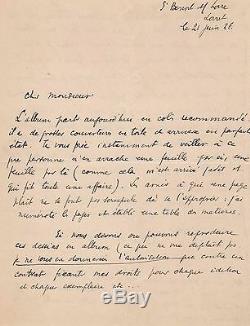 St Benoit s/ Loire
Loiret
le 21 juin
Cher Monsieur
L'album part aujourd'hui en colis recommandé
de grosses couvertures en toile
état. Je vous prie instamment de veiller à ce
que personne n'en arrache une feuille par ci, une
feuille par là (comme cela m'est arrivé jadis et
qui fit toute une affaire). Les amis à qui une page
plait ne
numéroté les pages et établi une table des matières.
Si nous devons ou pouvons reproduire
ces dessins en album (ce qui ne me déplait pas)
je ne vous en donnerai l'autorisation que contre un
contrat fixant mes droits pour chaque édition
et chaque exemplaire etc...
ebay